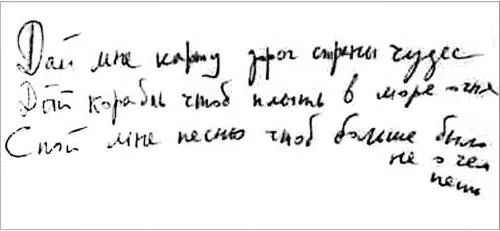 Дай мне карту дорог страны чудес
Дай корабль чтоб плыть в море огня
Спой мне песню чтоб больше было
не о чем
петь